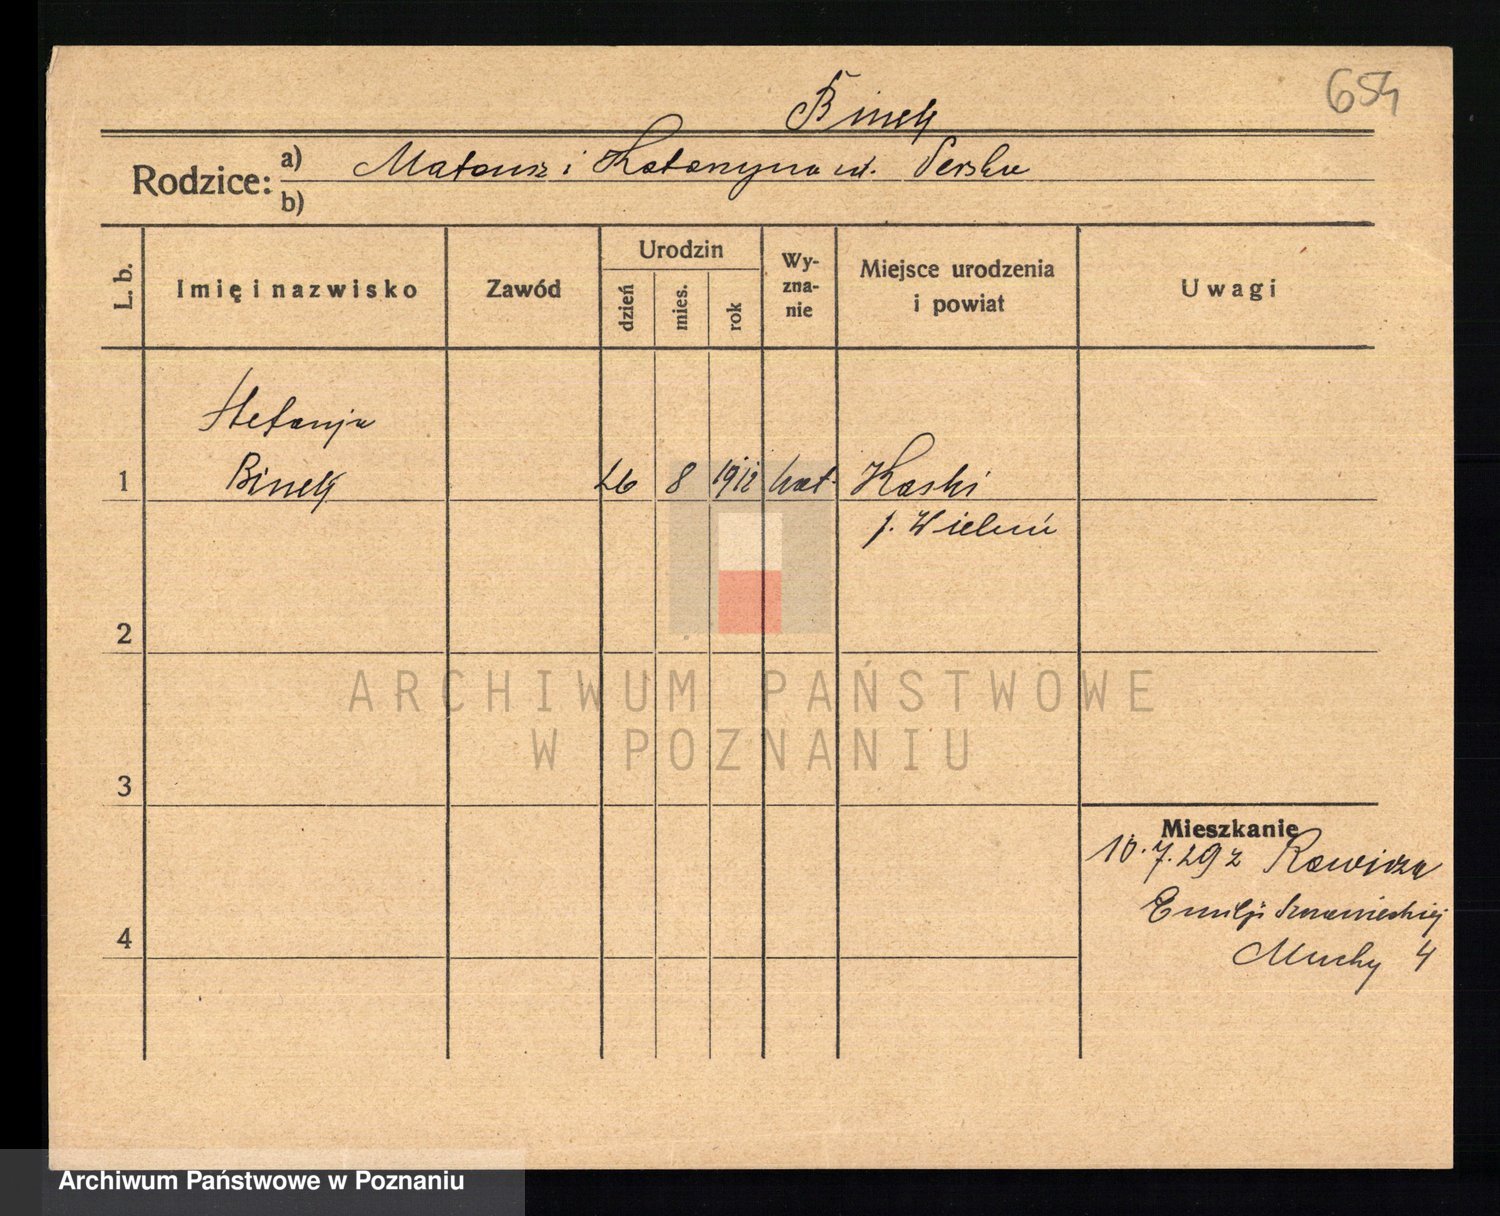 654
Binek
Rodzice: a) Mateusz i Katarzyna ur. Perska
b)
L. b.
Imię i nazwisko
Zawód
Urodzin
dzień
mies.
rok
Wy-
zna-
nie
Miejsce urodzenia
i powiat
Uwagi
Stefanja
1 Binek 26 8 1912 kat. Kaski
p. Wieluń
2
3
4
Mieszkanie
10.7.29 z Rawicza
Emilji
4
ARCHIWUM PAŃSTWOWE
W POZNANIU
Archiwum Państwowe w Poznaniu